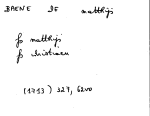 BAENE DE matthijs
fs matthijs
fs kristiaen
(1713) 327, 6200